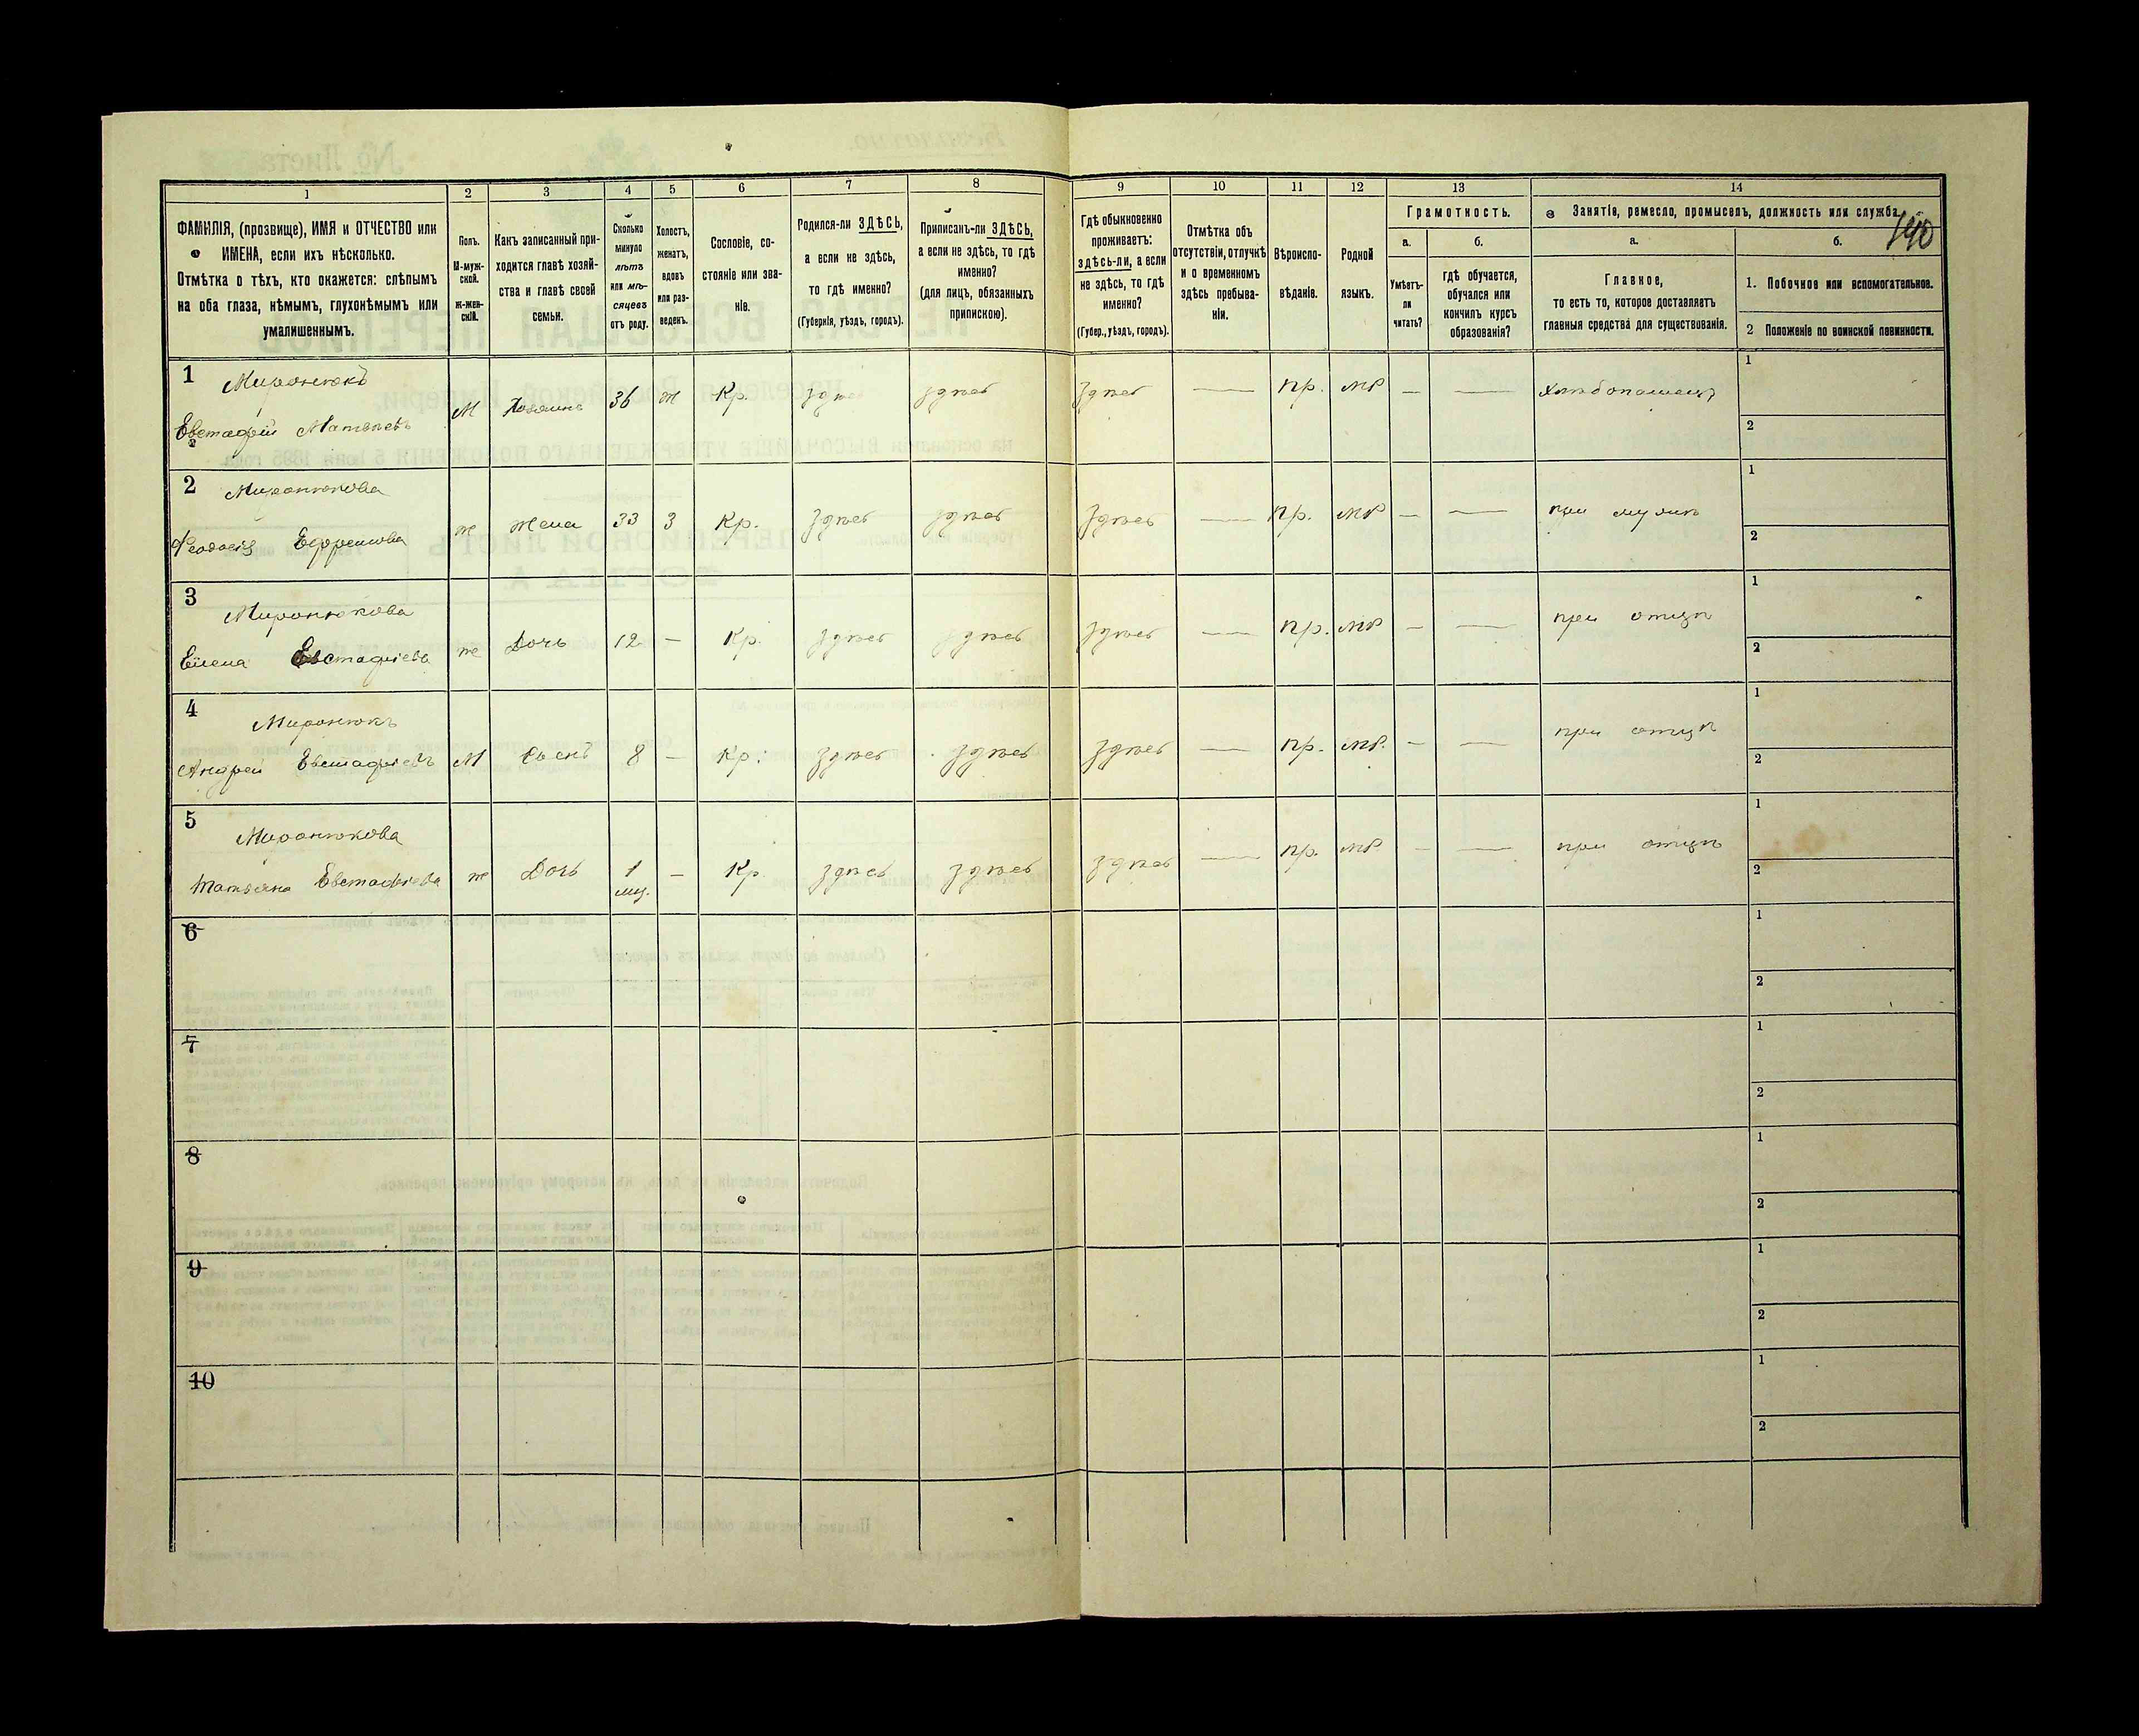 1 2 3 4 5 6 7 8 9 10 11 12 13 14
ФАМИЛІЯ, (прозвище), ИМЯ и ОТЧЕСТВО или
ИМЕНА, если ихъ нѣсколько.
Отмѣтка о тѣхъ, кто окажется: слѣпымъ
на оба глаза, нѣмымъ, глухонѣмымъ или
умалишеннымъ.
Полъ.
М-муж-
ской.
Ж-жен-
скій.
Какъ записанный при-
ходится главѣ хозяй-
ства и главѣ своей
семьи.
Сколько
минуло
лѣтъ
или мѣ-
сяцевъ
отъ роду.
Холостъ,
женатъ,
вдовъ
или раз-
веденъ.
Сословіе, со-
стояніе или зва-
ніе.
Родился-ли ЗДѢСЬ,
а если не здѣсь,
то гдѣ именно?
(Губернія, уѣздъ, городъ).
Приписанъ-ли ЗДѢСЬ,
а если не здѣсь, то гдѣ
именно?
(для лицъ, обязанныхъ
припискою).
Гдѣ обыкновенно
проживаетъ:
здѣсь-ли, а если
не здѣсь, то гдѣ
именно?
(Губер., уѣздъ, городъ).
Отмѣтка объ
отсутствіи, отлучкѣ
и о временномъ
здѣсь пребыва-
ніи.
Вѣроиспо-
вѣданіе.
Родной
языкъ.
Грамотность.
а.
Умѣетъ-
ли
читать?
б.
гдѣ обучается,
обучался или
кончилъ курсъ
образованія?
Занятіе, ремесло, промыселъ, должность или служба.
а.
Главное,
то есть то, которое доставляетъ
главныя средства для существованія.
б.
1. Побочное или вспомогательное.
2 Положеніе по воинской повинности.
1 Миронюкъ
Евстафій Матвѣевъ М Хозяинъ 36 ж Кр. здѣсь здѣсь здѣсь — пр. мр — — Хлѣбопашецъ
1
2
2 Миронюкова
Феодосія Ефремова ж Жена 33 з Кр. здѣсь здѣсь здѣсь — пр. мр — — при мужѣ
1
2
3 Миронюкова
Елена Евстафіева ж Дочь 12 — Кр. здѣсь здѣсь здѣсь — пр. мр — — при отцѣ
1
2
4 Миронюкъ
Андрей Евстафіевъ М Сынъ 8 — Кр. здѣсь здѣсь здѣсь — пр. мр. — — при отцѣ
1
2
5 Миронюкова
Татьяна Евстафіева ж Дочь 1 мц. — Кр. здѣсь здѣсь здѣсь — пр. мр — — при отцѣ
1
2
6
1
2
7
1
2
8
1
2
9
1
2
10
1
2